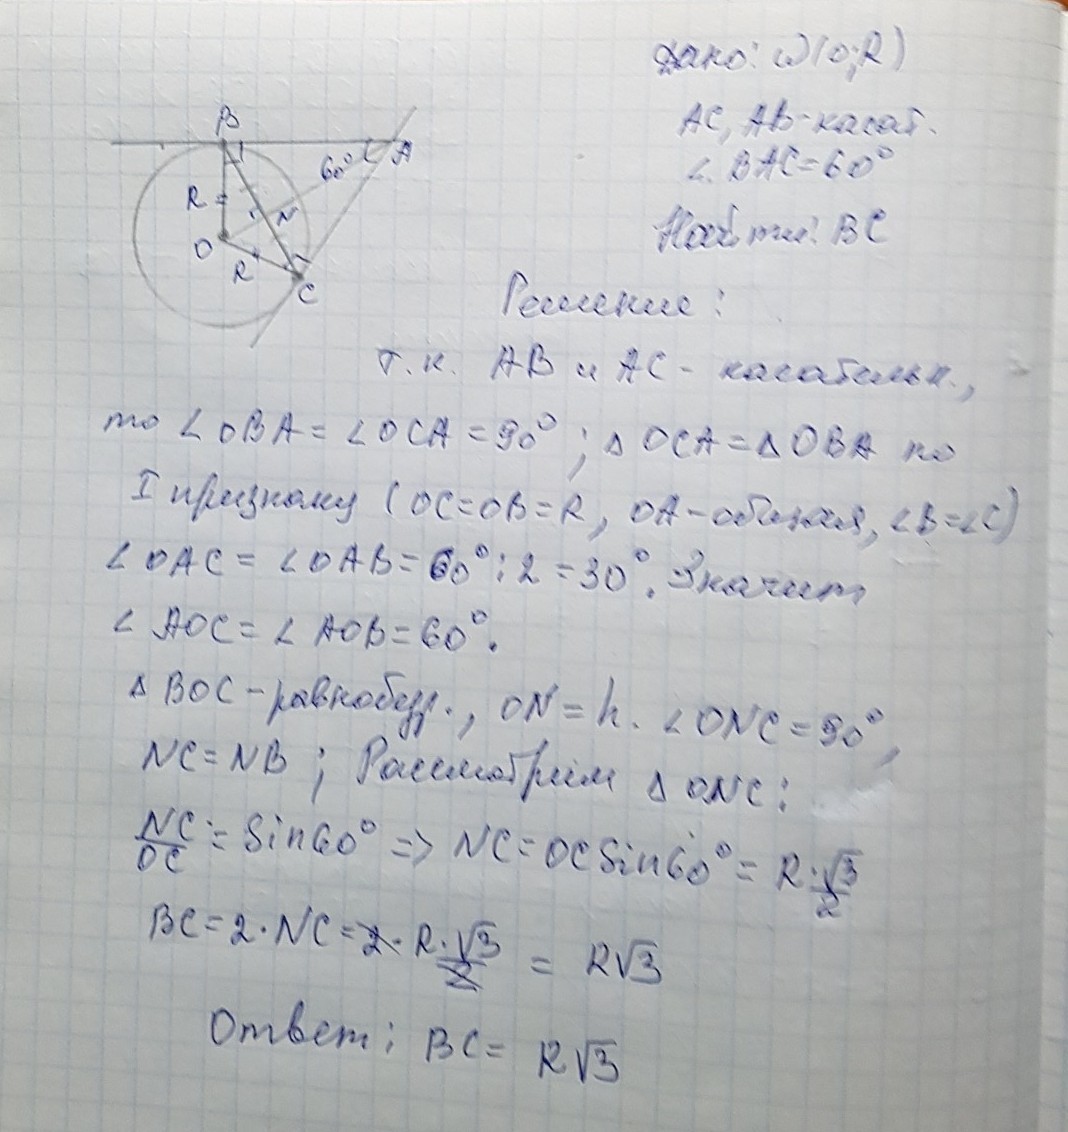 Дано: ω(O;R)
AC, AB-касат.
∠BAC=60°
Найти: BC
B
60°
A
R
N
O
R
C
Решение:
т.к. AB и AC - касательн.,
то ∠OBA=∠OCA=90°; ΔOCA=ΔOBA по
I признаку (OC=OB=R, OA-общая, ∠B=∠C)
∠OAC=∠OAB=60°:2=30°. Значит
∠AOC=∠AOB=60°.
ΔBOC-равнобедр., ON=h. ∠ONC=90°,
NC=NB; Рассмотрим ΔONC:
NC/OC=Sin60° => NC=OCSin60°=R·√3/2
BC=2·NC=2·R·√3/2=R√3
Ответ: BC=R√3